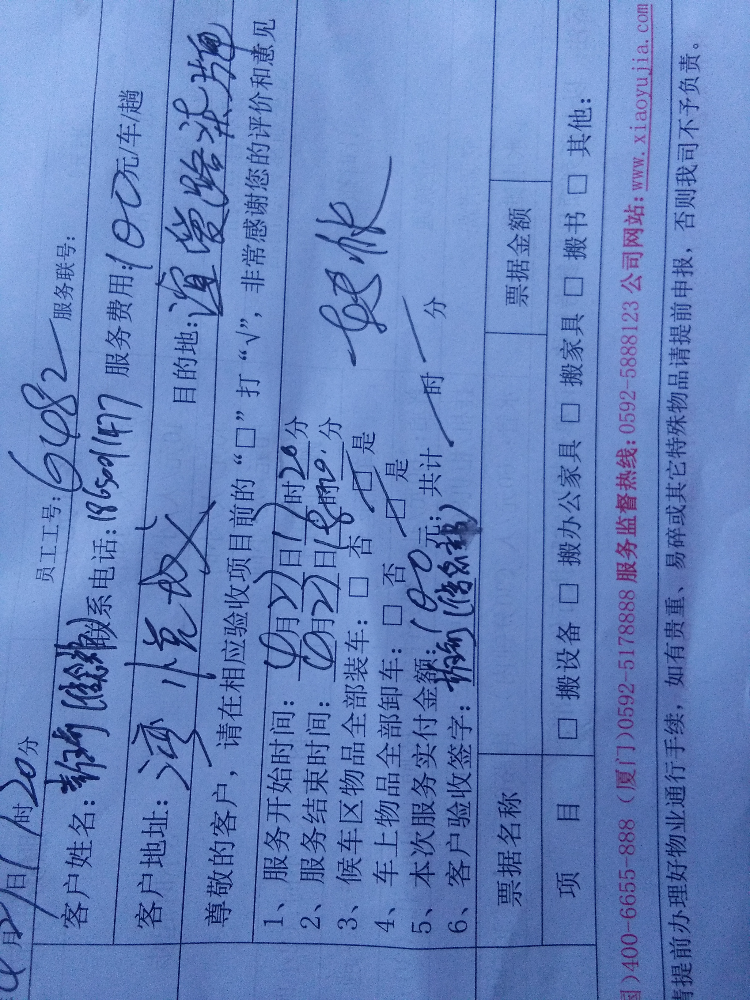 月21日17时20分 员工工号:6482 服务联号:
客户姓名: 联系电话: 服务费用:100元/车/趟
客户地址:湾悦城 目的地:
尊敬的客户，请在相应验收项目前的“□”打“√”，非常感谢您的评价和意见
1、服务开始时间: 月21日17时20分
2、服务结束时间: 月21日18时 分
3、候车区物品全部装车: □ 否 □ 是 转账
4、车上物品全部卸车: □ 否 □ 是
5、本次服务实付金额:100元; 共计 时 分
6、客户验收签字:
票据名称 票据金额
项 目 □ 搬设备 □ 搬办公家具 □ 搬家具 □ 搬书 □ 其他:
国)400-6655-888 (厦门)0592-5178888 服务监督热线:0592-5888123 公司网站:www.xiaoyujia.com
请提前办理好物业通行手续，如有贵重、易碎或其它特殊物品请提前申报，否则我司不予负责。